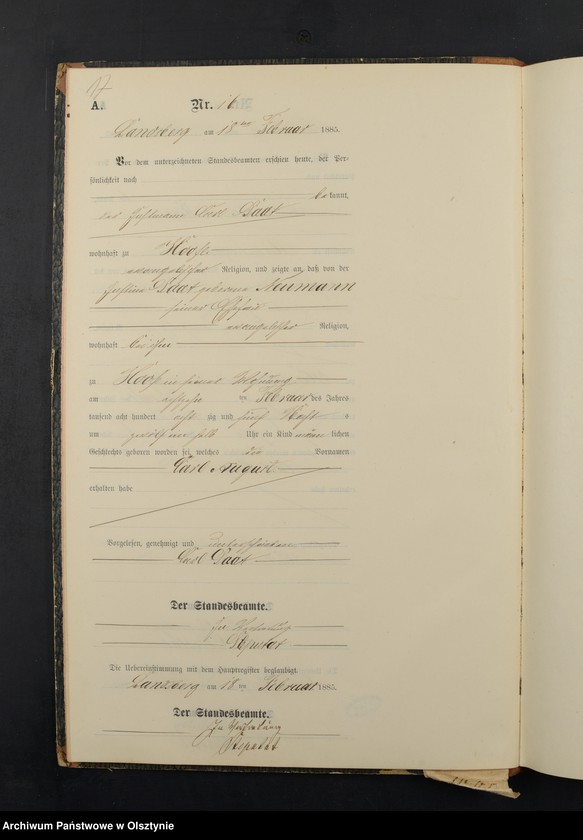 17
A.
Nr. 16
Landsberg am 18ten Februar 1885.
Vor dem unterzeichneten Standesbeamten erschien heute, der Per-
sönlichkeit nach
bekannt,
der Carl Daat
wohnhaft zu Hoofe
evangelischer Religion, und zeigte an, daß von der
Justine Daat geborene Neumann
seiner Ehefrau
evangelischer Religion,
wohnhaft bei ihm
zu Hoofe in seiner Wohnung
am ten Februar des Jahres
tausend acht hundert acht zig und fünf
um zwölf ein halb Uhr ein Kind männ lichen
Geschlechts geboren worden sei, welches die Vornamen
Carl August
erhalten habe
Vorgelesen, genehmigt und unterschrieben
Carl Daat
Der Standesbeamte.
In Vertretung
Die Uebereinstimmung mit dem Hauptregister beglaubigt.
Landsberg am 18 ten Februar 1885.
Der Standesbeamte.
In Vertretung
Archiwum Państwowe w Olsztynie